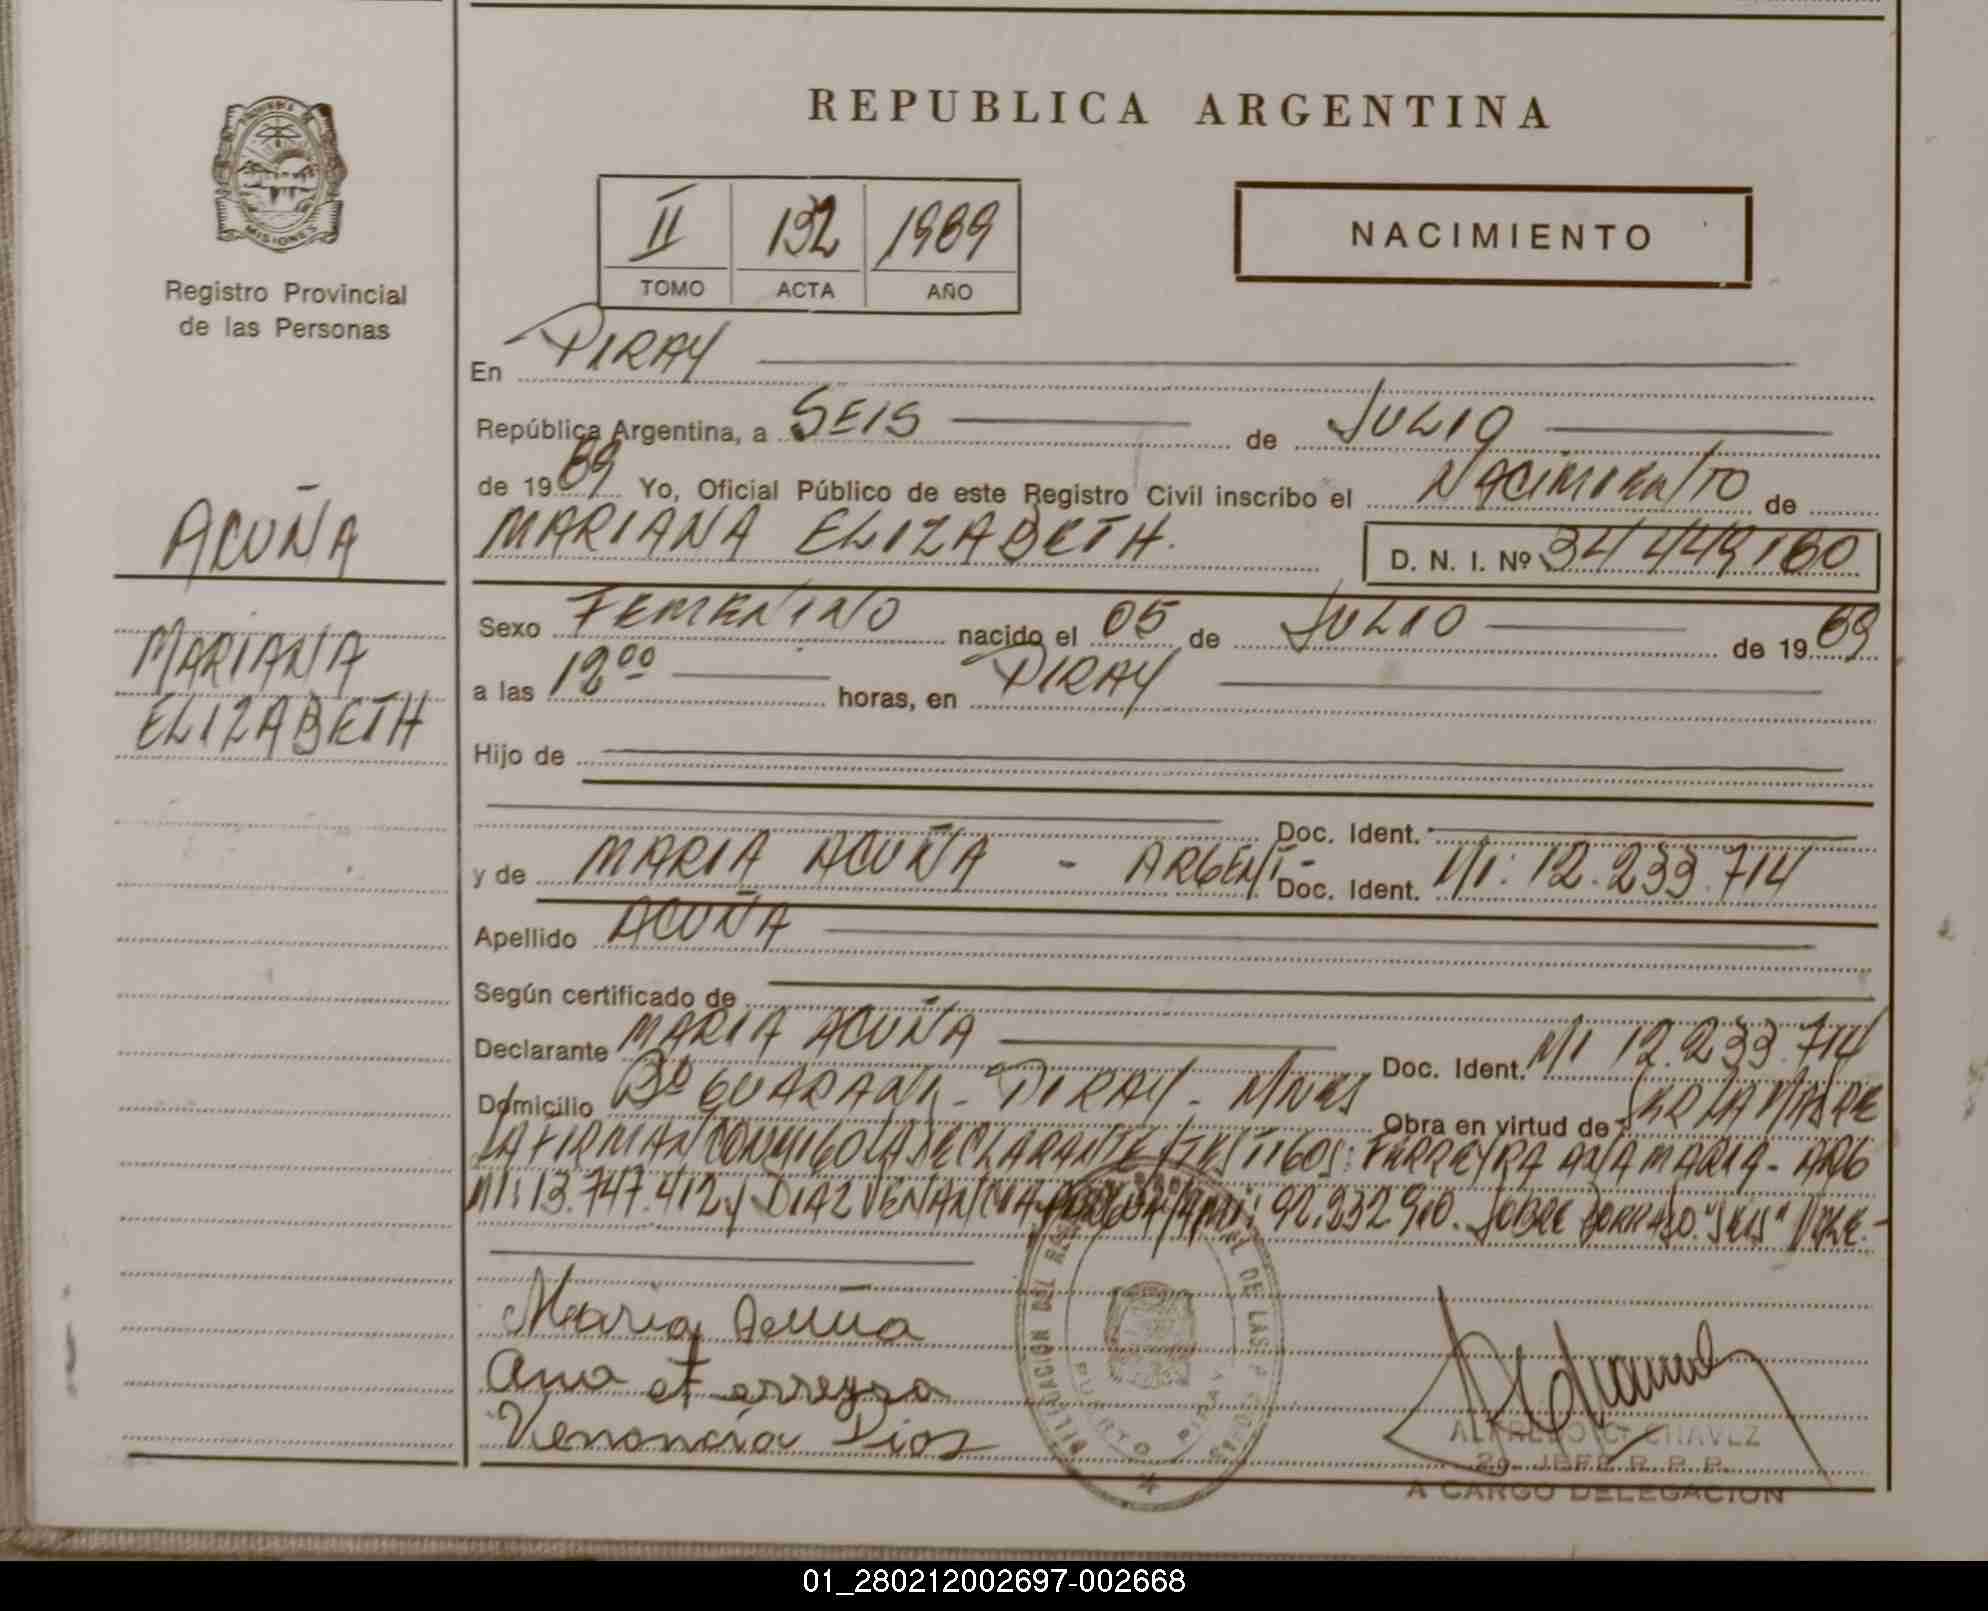 REPUBLICA ARGENTINA
MISIONES
Registro Provincial
de las Personas
II 132 1989
TOMO ACTA AÑO
NACIMIENTO
En PIRAY
República Argentina, a SEIS de JULIO
de 1989 Yo, Oficial Público de este Registro Civil inscribo el NACIMIENTO de
ACUÑA
MARIANA ELIZABETH. D. N. I. Nº 34 449 160
MARIANA
ELIZABETH
Sexo FEMENINO nacido el 05 de JULIO de 1989
a las 12 00 horas, en PIRAY
Hijo de
Doc. Ident.
y de MARIA ACUÑA - ARGENT- Doc. Ident. MI: 12.233.714
Apellido ACUÑA
Según certificado de
Declarante MARIA ACUÑA Doc. Ident. MI 12.233.714
Domicilio Bº GUARANI - PIRAY - MNES Obra en virtud de SER LA MADRE
LA FIRMAN CONMIGO LA DECLARANTE Y TESTIGOS: FERREYRA ANA MARIA - ARG
MI: 13.747.412 y DIAZ VENANCIA 92.232.910. SOBRE BORRADO "SEIS" VALE.-
Maria Acuña
Ana Ferreyra
Venancia Dias
DELEGACION DEL REGISTRO DE LAS
PUERTO PIRAY
ALFREDO C. CHAVEZ
2o. JEFE R. P. P.
A CARGO DELEGACION
01_280212002697-002668